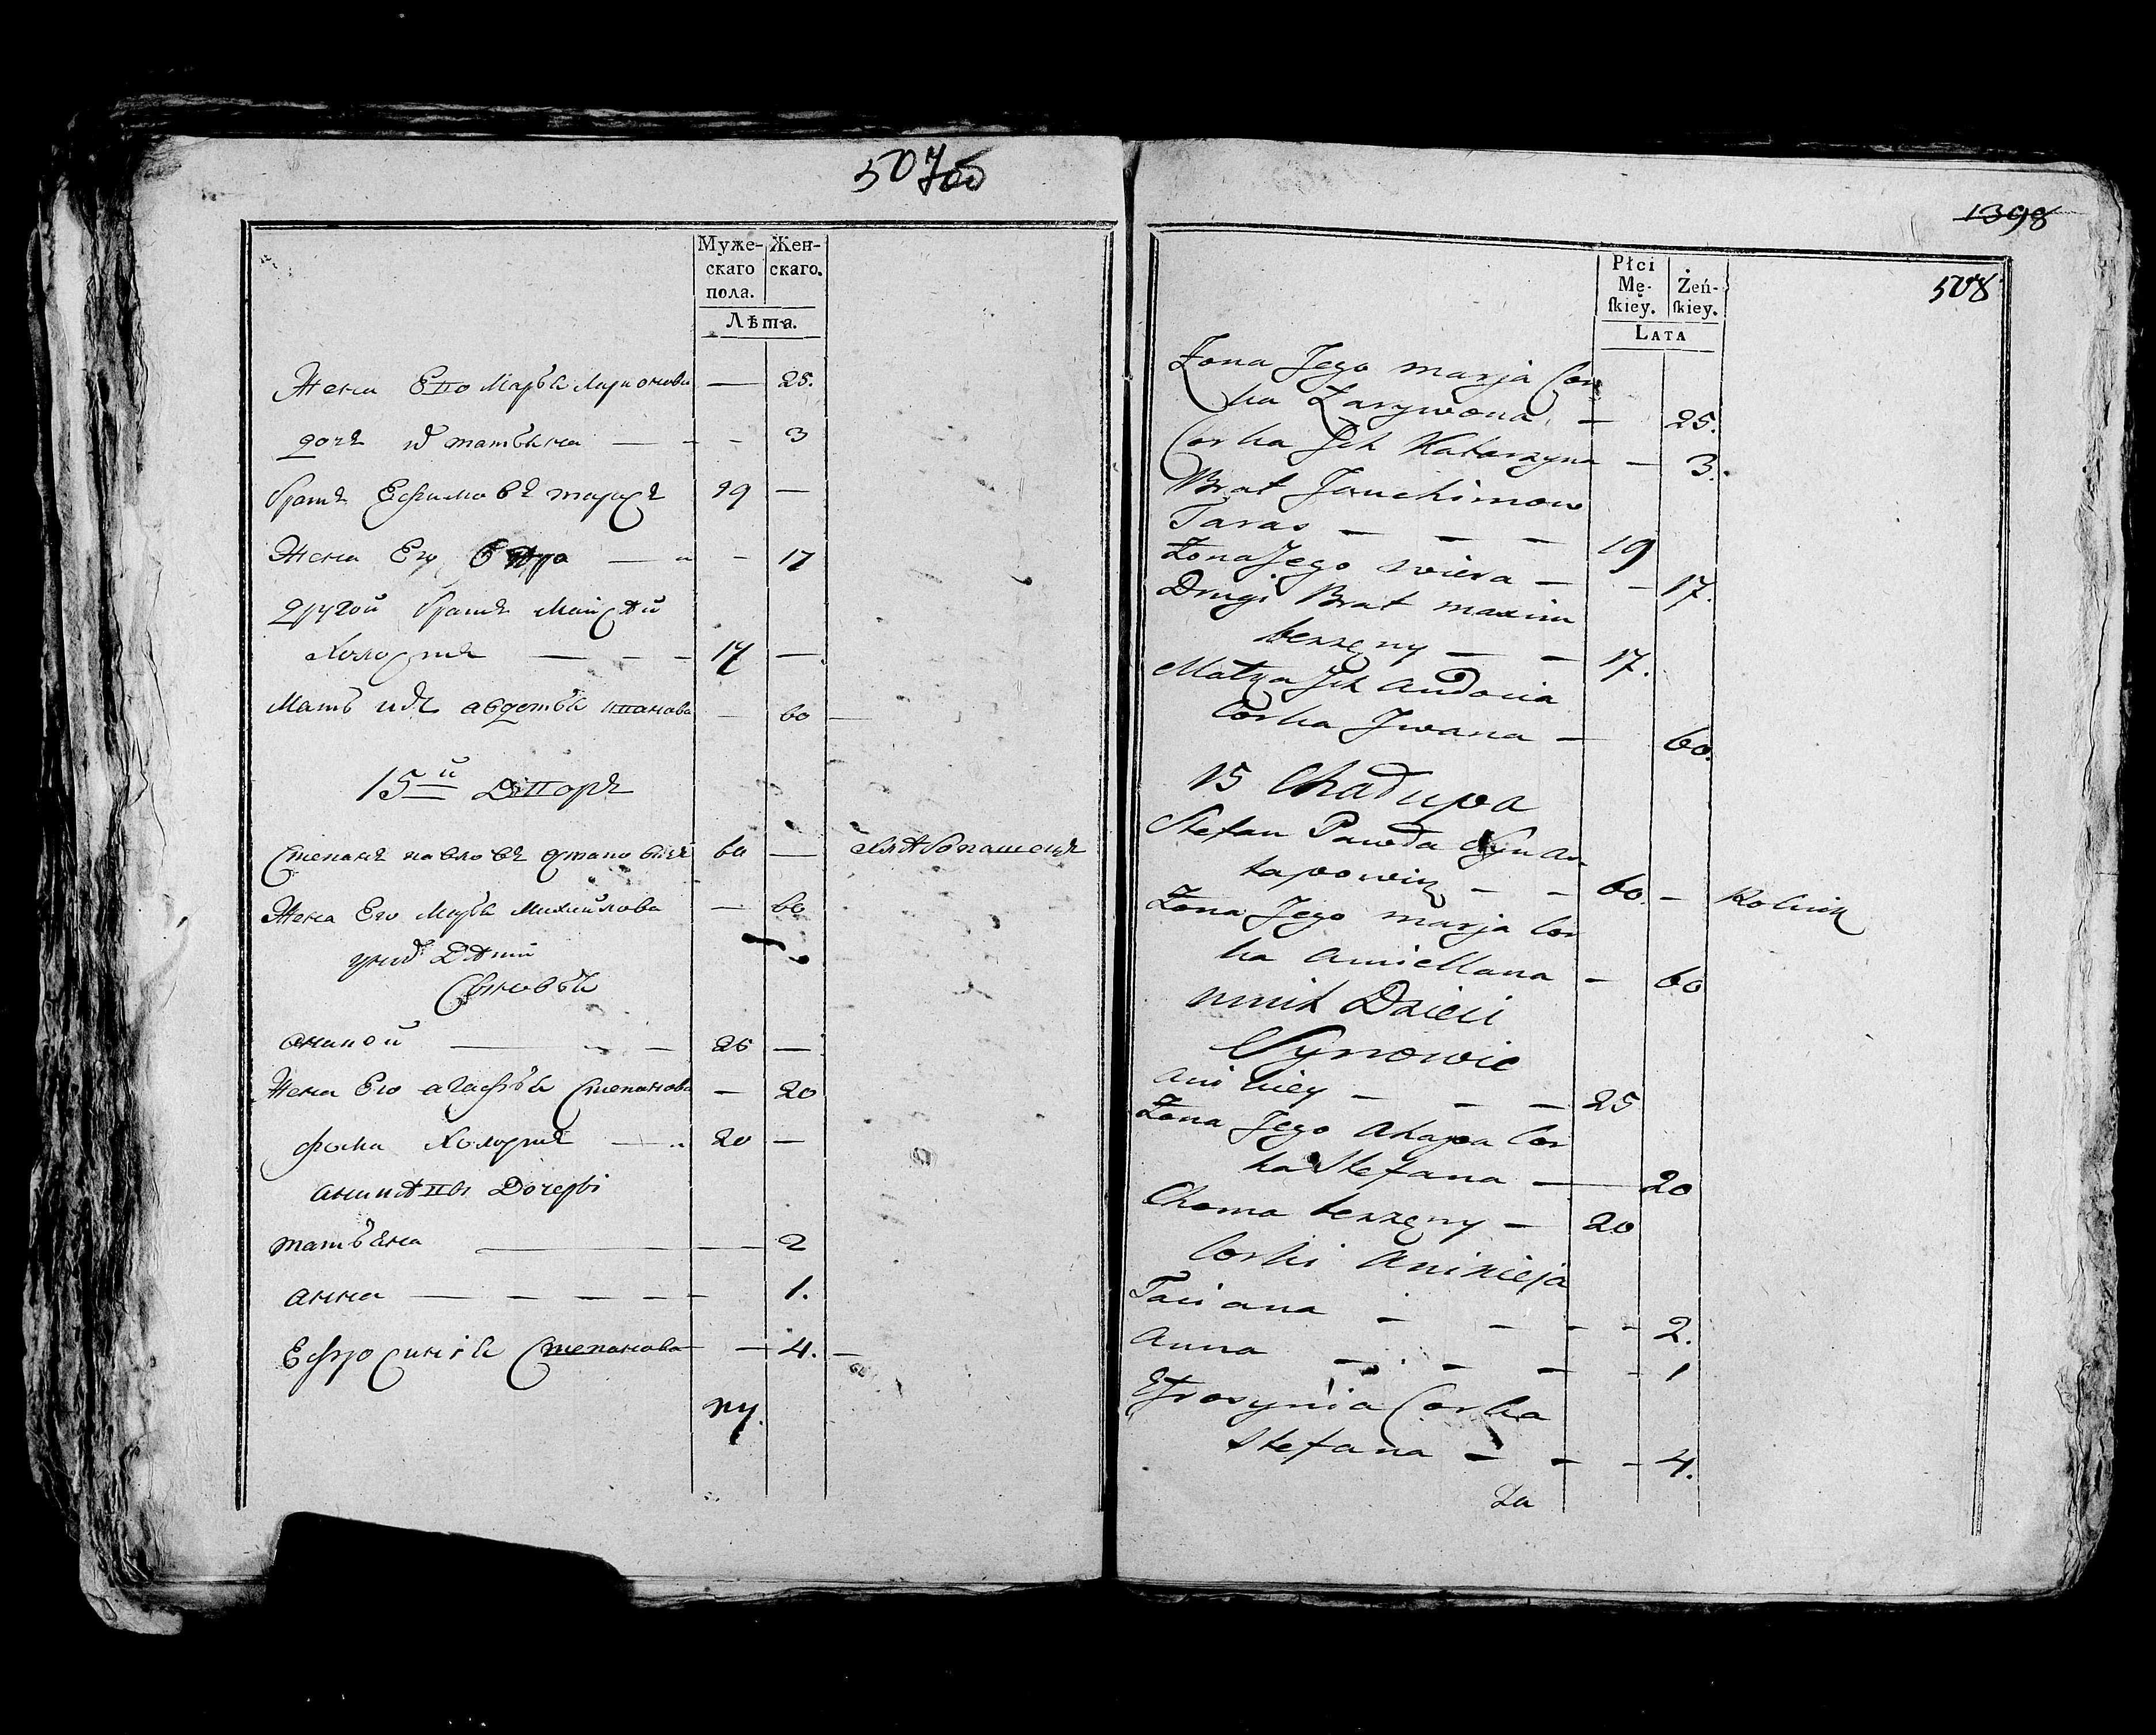 507об
Муже-
скаго
пола.
Жен-
скаго.
Лѣта.
Жена Его Марья Ларионова — 25.
дочь их татьяна — — - 3
братъ Ефимовъ тарасъ 19 —
Жена Его — - 17
другой братъ
Холостъ — - - 17 —
Мать ихъ авдотья иванова — 60 —
15й Дворъ
Степанъ павловъ остаповичъ 60 — хлебопашецъ
Жена Его Марья Михайлова — 60
у них Дети
Сыновья
аникой — - - 25 —
Жена Его агафья Степанова — 20
фома Холостъ — 20 —
аникеевы Дочери
татьяна — — 2
анна — — — — — — 1.
Ефросинья Степанова — 4. —
1398
508
Płci
Mę-
ſkiey.
Żeń-
ſkiey.
LATA
Żona Jego marja Cor
ka Larywona — 25.
Corka Jch Katarzyna — 3.
Brat Jauchimow
Taras — — — 19
Żona Jego wiera — - 17.
Drugi Brat maxim
bezżęny — — 17.
Matka Jch audocia
Corka Jwana — 60.
15 Chałupa
Stefan Pawła Syn as
tapowicz - - 60. - Rolnik
Żona Jego marja Cor
ka — 60
unich Dzieci
Synowie
anikiey — — — 25
Żona Jego ahapa Cor
ka Stefana — 20
Choma bezżęny — 20
Corki anikieja
Taciana - - - - 2.
anna - . - - - 1
Efrosynia Corka
Stefana - - - 4.
Za